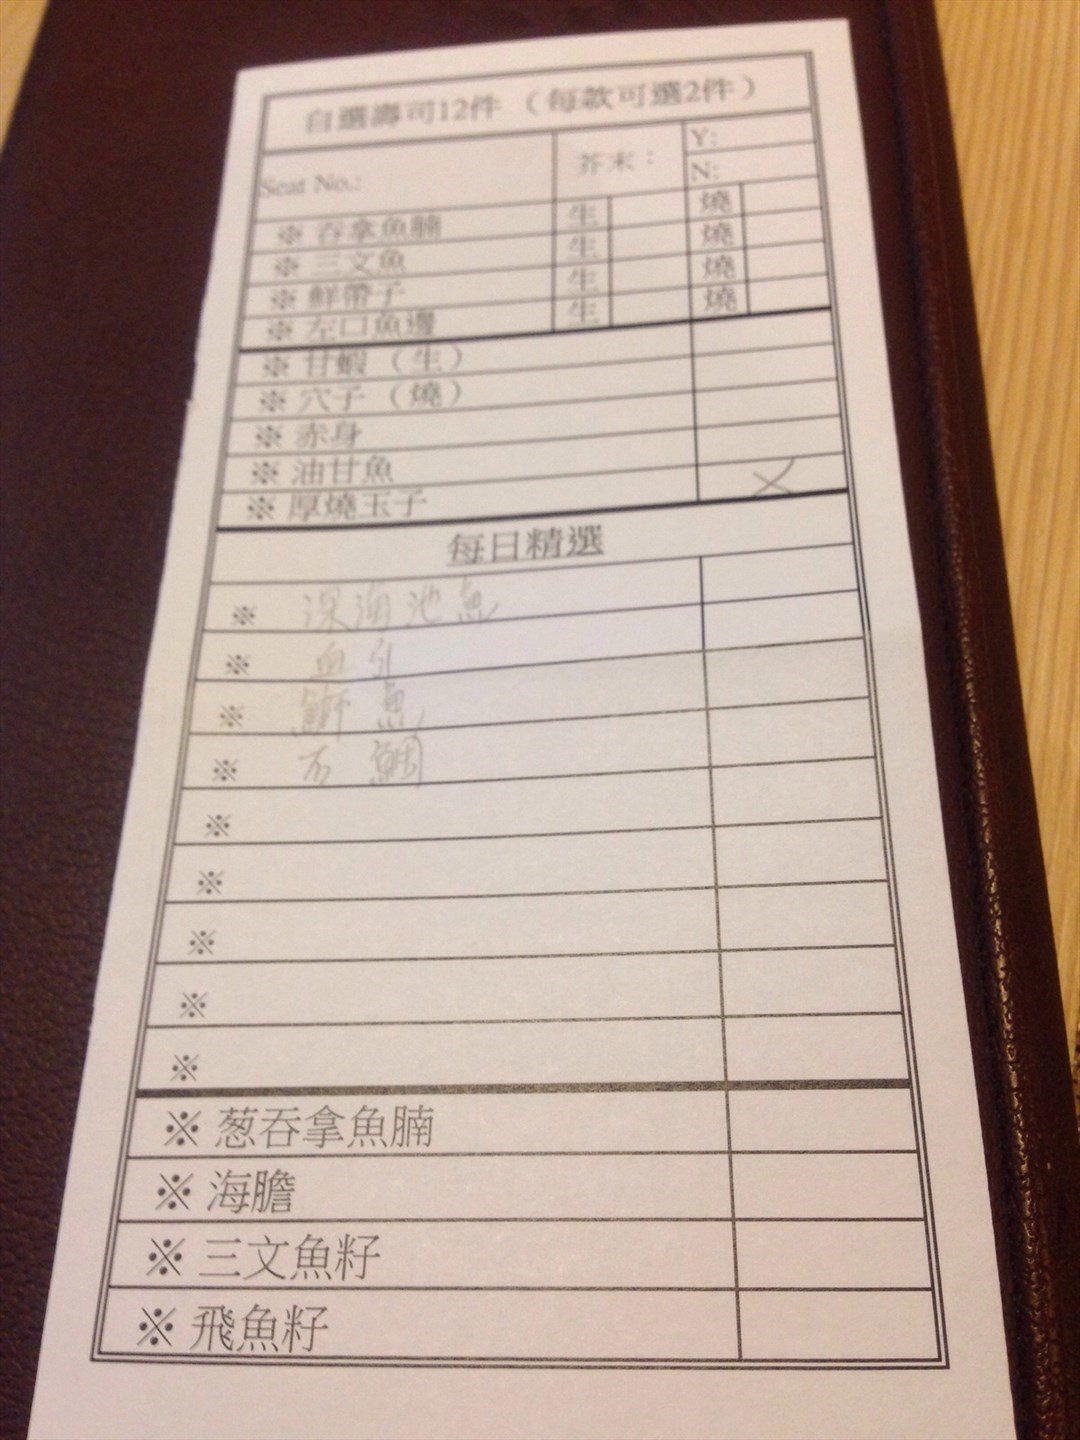 自選壽司12件 （每款可選2件）
Seat No.: 芥末： Y:
N:
※ 吞拿魚腩 生 燒
※ 三文魚 生 燒
※ 鮮帶子 生 燒
※ 左口魚邊 生 燒
※ 甘蝦 （生）
※ 穴子 （燒）
※ 赤身
※ 油甘魚
※ 厚燒玉子
每日精選
※ 深海池魚
※ 血引
※ 鰤魚
※ 石鯛
※
※
※
※
※
※ 葱吞拿魚腩
※ 海膽
※ 三文魚籽
※ 飛魚籽